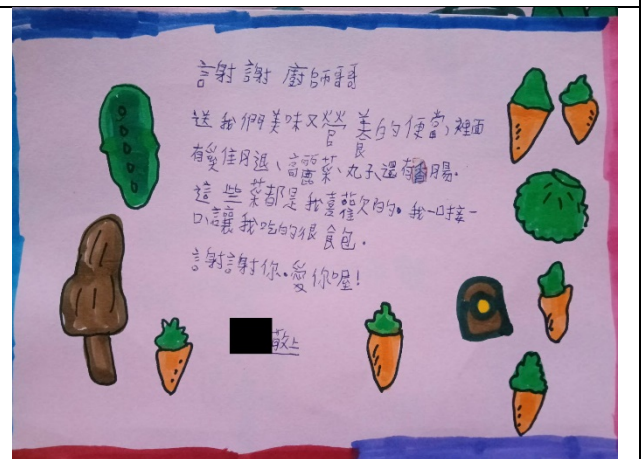 謝謝 廚師哥哥
送我們美味又營養的便當,裡面
有雞腿、高麗菜、丸子還有香腸.
這些菜都是我喜歡的。我一口接一
口讓我吃的很飽.
謝謝你。愛你喔!
敬上